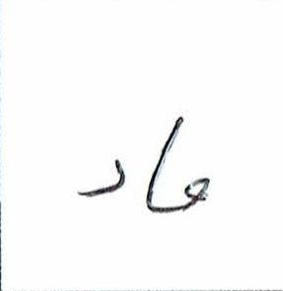 عاد